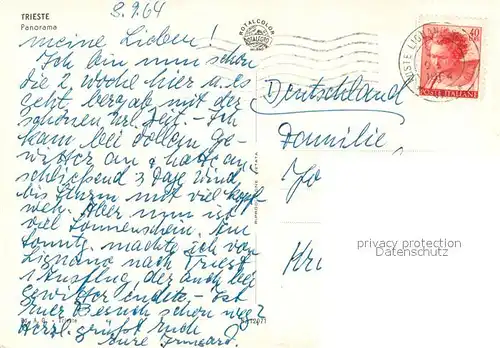 TRIESTE
Panorama
3.9.64
meine Lieben!
Ich bin nun schon
die 2. Woche hier u. es
geht bergab mit der
schönen Url. Zeit. - Ich
kam bei dollem Ge-
witter an & hatte an-
schließend 3 Tage Wind
bis Sturm mit viel Kopf-
weh. Aber nun ist
viel Sonnenschein. Am
Sonntg. machte ich von
Lignano nach Triest
1 Ausflug, der auch bei
gewitter endete. - Ist
Euer Besuch schon weg?
Herzl. grüßt Euch
Eure Irmgard
ROTALCOLOR
40
POSTE ITALIANE
Deutschland
Familie
Jo
Hri
privacy protection
Datenschutz